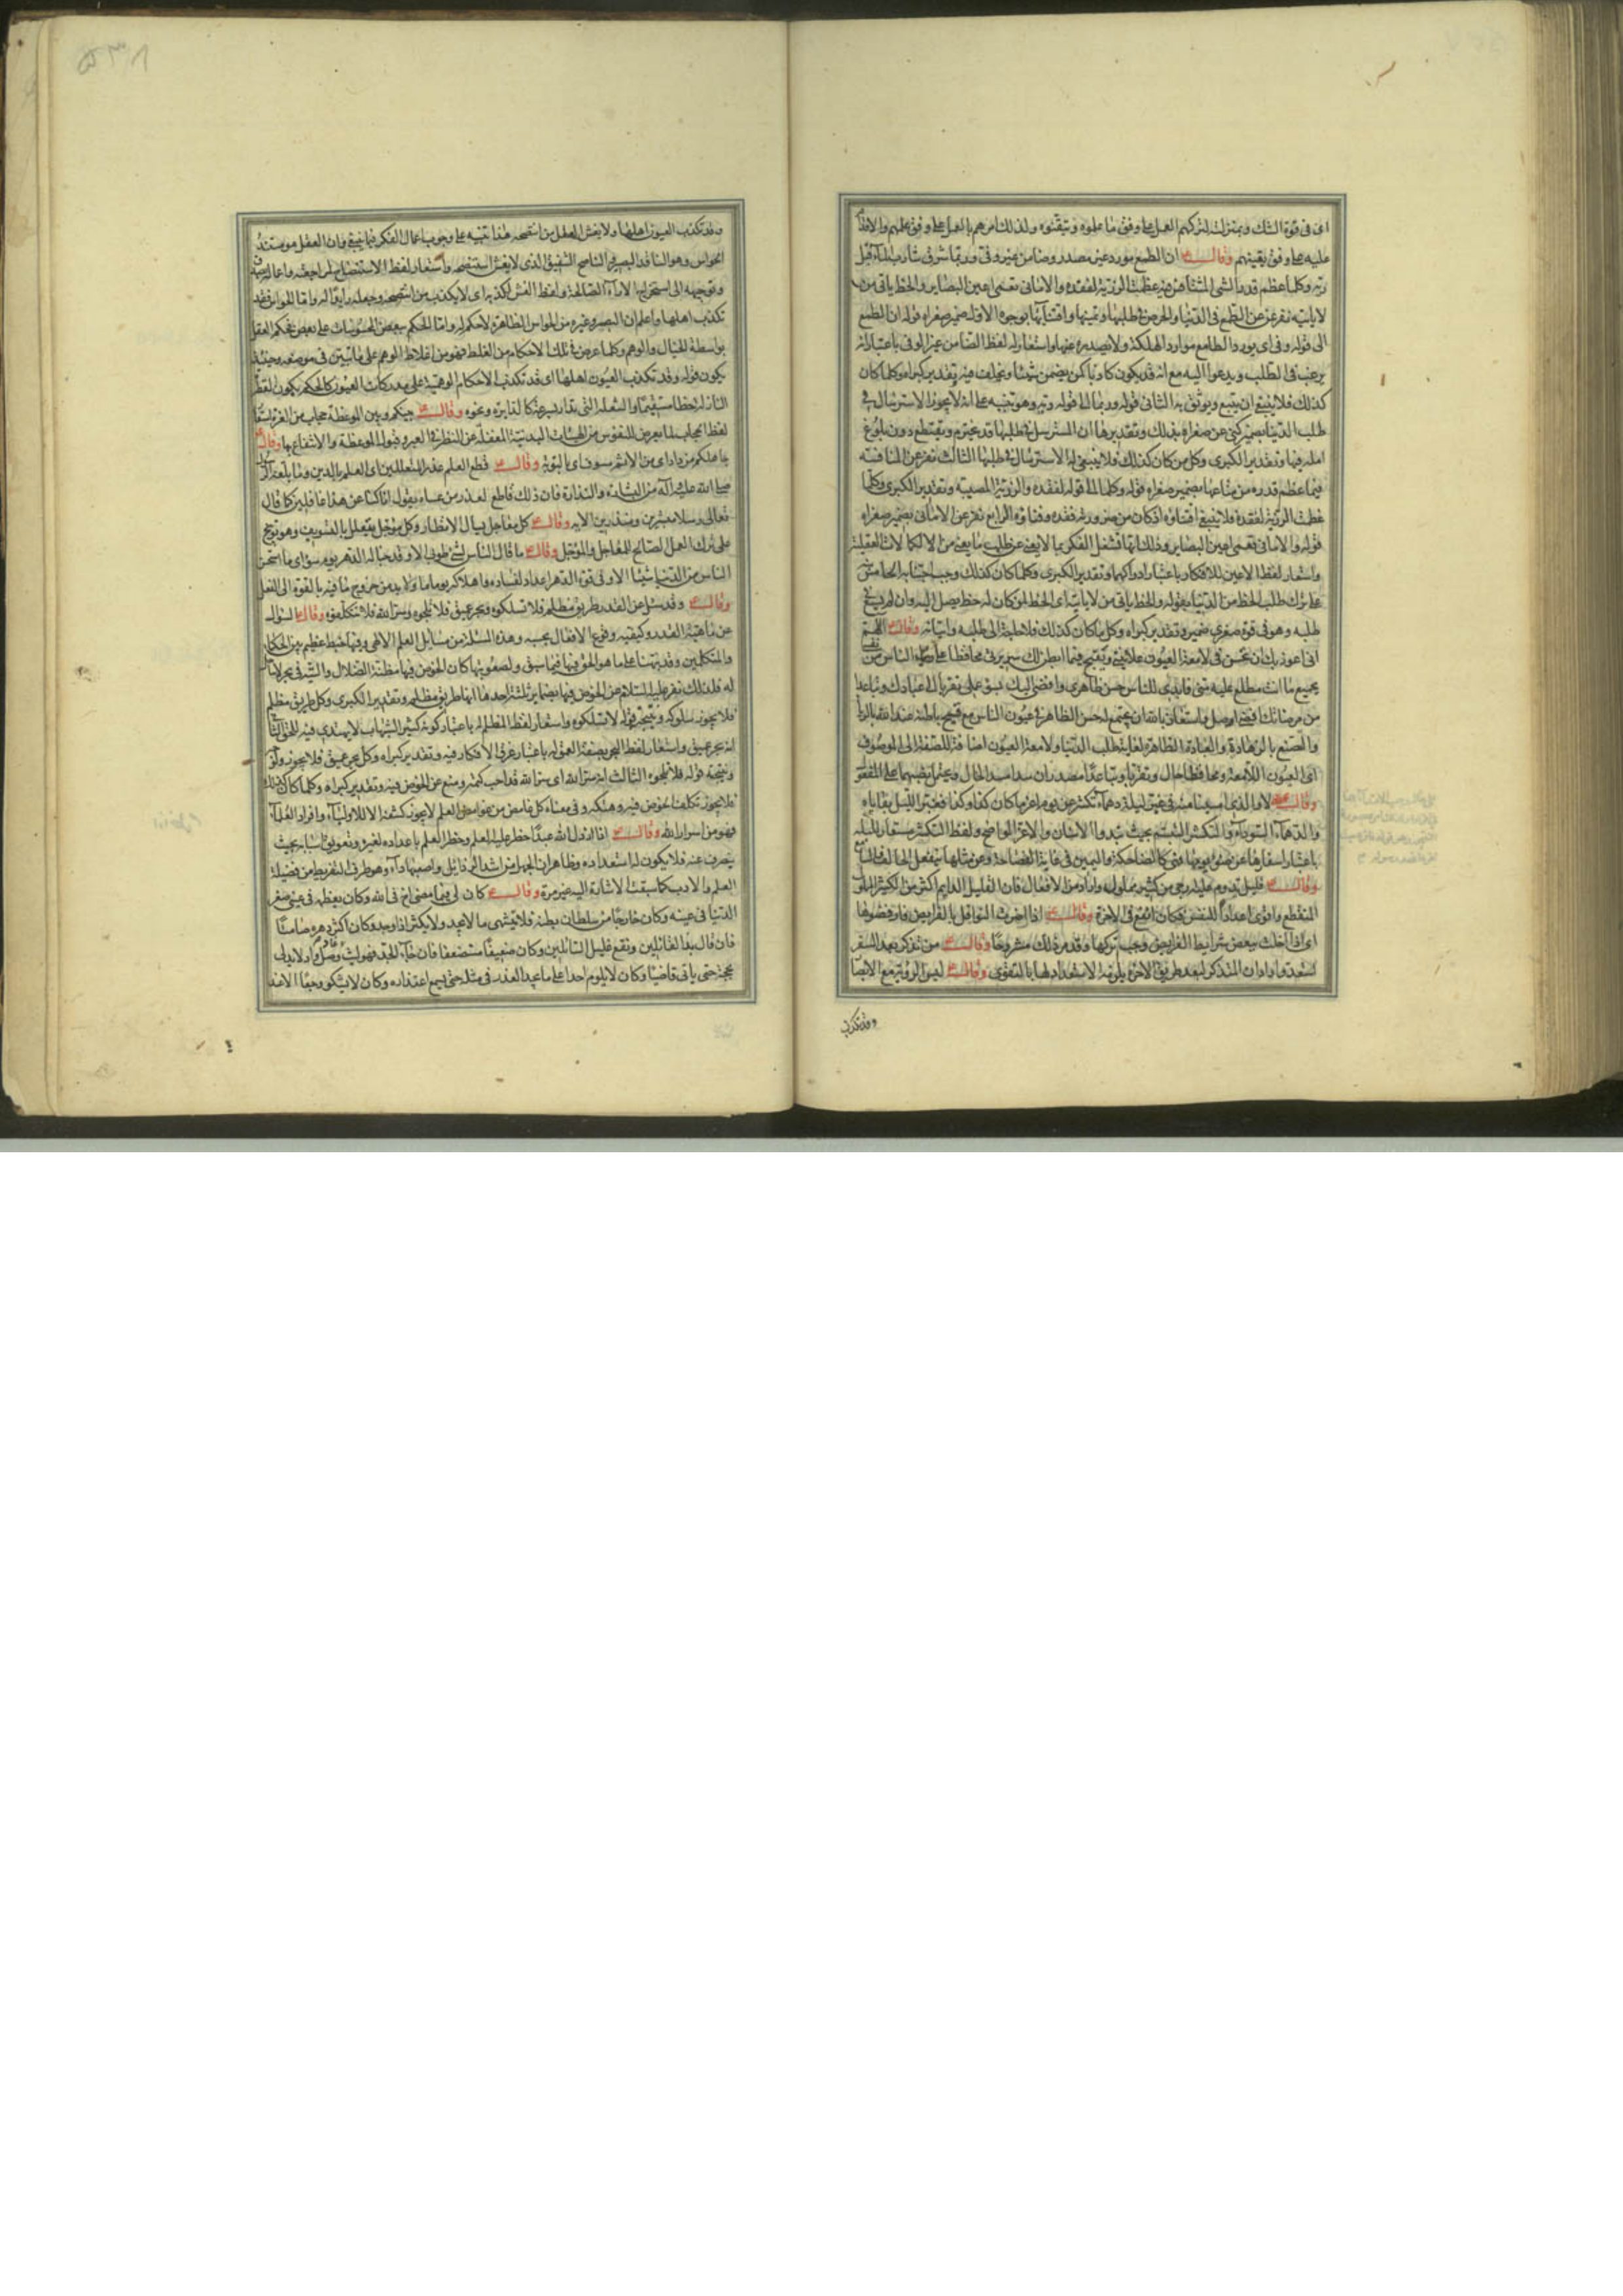 اى فى قوة الشك وبمنزلته لتركهم العمل على وفق ما علموه وتيقنوه ولذلك امرهم بالعمل على وفق علمهم والاقدام
عليه على وفق يقينهم وقال ع ان الطمع مورد غير مصدر وضامن غير وفى وربما شرق شارب الماء قبل
ريه وكلما عظم قدر الشى المتنافس فيه عظمت الرزية لفقده والامانى تعمى اعين البصاير والحظ ياتى من
لا ياتيه نفر عن الطمع فى الدنيا والحرص فى طلبها وتمنيها واقتنائها بوجوه الاول ضمير صغراه قوله ان الطمع
الى قوله وفى اى يورد الطامع موارد الهلكة ولا يصدره عنها واستعار له لفظ الضامن غير الوفى باعتبار انه
يرغب فى الطلب ويدعوا اليه مع انه قد يكون كاذبا كمن يضمن شيئا ويخلف فيه وتقدير كبراه وكلما كان
كذلك فلا ينبغى ان يتبع ويوثق به الثانى قوله وربما الى قوله ريه وهو تنبيه على انه لا يجوز الاسترسال فى
طلب الدنيا بضمير كنى عن صغراه بذلك وتقديرها ان المسترسل فى طلبها قد يخترم ويقتطع دون بلوغ
امله فيها وتقدير الكبرى وكل من كان كذلك فلا ينبغى له الاسترسال فى طلبها الثالث نفر عن المنافسة
فيما عظم قدره من متاعها بضمير صغراه قوله وكلما الى قوله لفقده والرزية المصيبة وتقدير الكبرى وكلما
عظمت الرزية لفقده فلا ينبغى اقتناؤه اذ كان من ضرورته فقده وفناؤه الرابع نفر عن الامانى بضمير صغراه
قوله والامانى تعمى اعين البصاير وذلك انها تشغل الفكر بما لا يعنى عن طلب ما يعنى من الكمالات العقلية
واستعار لفظ الاعين للافكار باعتبار ادراكها وتقدير الكبرى وكلما كان كذلك وجب اجتنابه الخامس
على ترك طلب الحظ من الدنيا بقوله والحظ ياتى من لا ياتيه اى الحظ لمن كان له حظ يصل اليه وان لم يسع فى
طلبه وهو فى قوة صغرى ضمير وتقدير كبراه وكل ما كان كذلك فلا حاجة الى طلبه واتيانه وقال ع اللهم
انى اعوذ بك ان تحسن فى لامعة العيون علانيتى وتقبح فيما ابطن لك سريرتى محافظا على رياء الناس من نفسى
بجميع ما انت مطلع عليه منى فابدى للناس حسن ظاهرى وافضى اليك بسوء عملى تقربا الى عبادك وتباعدا
من مرضاتك
والتصنع بالزهادة والعبادة الظاهرة لغاية طلب الدنيا ولامعة العيون اضافة للصفة الى الموصوف
اى العيون اللامعة ومحافظا حال وتقربا وتباعدا مصدران سدا مسد الحال ويحتمل نصبهما على المفعول
وقال ع لا والذى امسينا منه فى غبر ليلة دهماء تكشر عن يوم اغر ما كان كذا وكذا فغبر الليل بقاياه
والدهماء السوداء والتكشر التبسم بحيث تبدوا الاسنان والاغر الواضح ولفظ التكشر مستعار لليلة
باعتبار اسفارها عن ضوء يومها فهى كالضاحكة واليمين فى غاية الفصاحة
وقال ع قليل تدوم عليه ارجى من كثير مملول
المنقطع واقوى اعدادا للنفس فكان انفع فى الاخرة وقال ع اذا اضرت النوافل بالفرايض فارفضوها
اى اذا اخلت ببعض شرائط الفرايض وجب تركها وقد مر ذلك مشروحا وقال ع من تذكر بعد السفر
استعد وارادان المتذكر لبعد طريق الاخرة يلزمه الاستعداد لها بالتقوى وقال ع ليس الروية مع الابصار
وقد تكذب
وقد تكذب العيون اهلها ولا يغش العقل من استنصحه هذا تنبيه على وجوب اعمال الفكر فيما ينبغى وان العقل هو مستند
الحواس وهو الناقد البصير والناصح الشفيق الذى لا يغش استنصحه واستعار لفظ الاستنصاح لمراجعته
وتوجيهه الى استخراج الاراء الصالحة ولفظ الغش لكذبه اى لا يكذب من استنصحه وجعله رايدا له واما الحواس فقد
تكذب اهلها واعلم ان البصر وغيره من الحواس الظاهرة لا حكم له واما الحكم ببعض المحسوسات على بعض فحكم العقل
بواسطة الخيال والوهم وكلما عرض فى تلك الاحكام من الغلط فهو من اغلاط الوهم على ما تبين فى موضعه وحينئذ
يكون قوله وقد تكذب العيون اهلها اى قد تكذب الاحكام الوهمية على مدركات العيون كالحكم بكون القطر
النازل خطا مستقيما والشعلة التى تدار بسرعة كالدايرة ونحوه وقال ع بينكم وبين الموعظة حجاب من الغرة استعار
لفظ الحجاب لما يعرض للنفوس من الهيئات البدنية المغفلة عن النظر فى العبر وقبول الموعظة والانتفاع بها وقال ع
جاهلكم مزداد اى من الاثم مسوف اى بالتوبة وقال ع قطع العلم عذر المتعللين اى العلم بالدين وما بلغه الرسول
صلى الله عليه وآله من البشارة والنذارة فان ذلك قاطع لعذر من عساه يقول انا كنا عن هذا غافلين كما قال
تعالى رسلا مبشرين ومنذرين الاية وقال ع كل معاجل يسال الانظار وكل موجل يتعلل بالتسويف وهو توبيخ
على ترك العمل الصالح للمعاجل والمؤجل وقال ع ما قال الناس لشئ طوبى الا وقد خبا له الدهر يوم سوء اى ما استحسن
الناس من الدنيا شيئا الا وفى قوة الدهر اعداد لفساده واهلاكه يوما ما ولا بد من خروج ما فيه بالقوة الى الفعل
وقال ع وقد سئل عن القدر طريق مظلم فلا تسلكوه وبحر عميق فلا تلجوه وسر الله فلا تتكلفوه
عن ماهية القدر وكيفية وقوع الافعال بحسبه وهذه المسئلة من مسايل العلم الالهى وفيها خبط عظيم بين الحكماء
والمتكلمين وقد نبهنا على ما هو الحق فيها فيما سبق ولصعوبتها كان الخوض فيها مظنة الضلال والتيه فى بحر لا ساحل
له فلذلك نفر عليه السلام عن الخوض فيها بضماير ثلثة احدها انها طريق مظلم وتقدير الكبرى وكل طريق مظلم
فلا يجوز سلوكه ونتيجته قوله لا تسلكوه واستعار لفظ المظلم له باعتبار كونه كثير الشبهات لا يهتدى فيه للحق الثانى
انه بحر عميق واستعار لفظ البحر بصفة العمق له باعتبار غرق الافكار فيه وتقدير كبراه وكل بحر عميق فلا يجوز ولوجه
ونتيجته قوله فلا تلجوه الثالث انه سر الله اى سر الله قد احب كتمه ومنع عن الخوض فيه وتقدير كبراه وكلما كان كذلك
فلا يجوز تكلف الخوض فيه وهتكه وفى معناه كل غامض من غوامض العلم لا يجوز كشفه الا للاولياء وافراد العلماء
فهو من اسرار الله وقال ع اذا ارذل الله عبدا حظر عليه العلم وحظر العلم باعداده لغيره وتعويق اسبابه بحيث
ينصرف عنه فلا يكون له استعداده وظاهر ان الجهل من اشد الرذايل واصعبها داء وهو طرف التفريط من فضيلة
العلم والادب كما سبقت الاشارة اليه غير مرة وقال ع كان لى فيما مضى اخ فى الله وكان يعظمه فى عينى صغر
الدنيا فى عينه وكان خارجا من سلطان بطنه فلا يشتهى ما لا يجد ولا يكثر اذا وجد وكان اكثر دهره صامتا
فان قال بذ القائلين ونقع غليل السائلين وكان ضعيفا مستضعفا فان جاء الجد فهو ليث وصل واد لا يدلى
بحجة حتى ياتى قاضيا وكان لا يلوم احدا على ما يجد العذر فى مثله حتى يسمع اعتذاره وكان لا يشكو وجعا الا عند